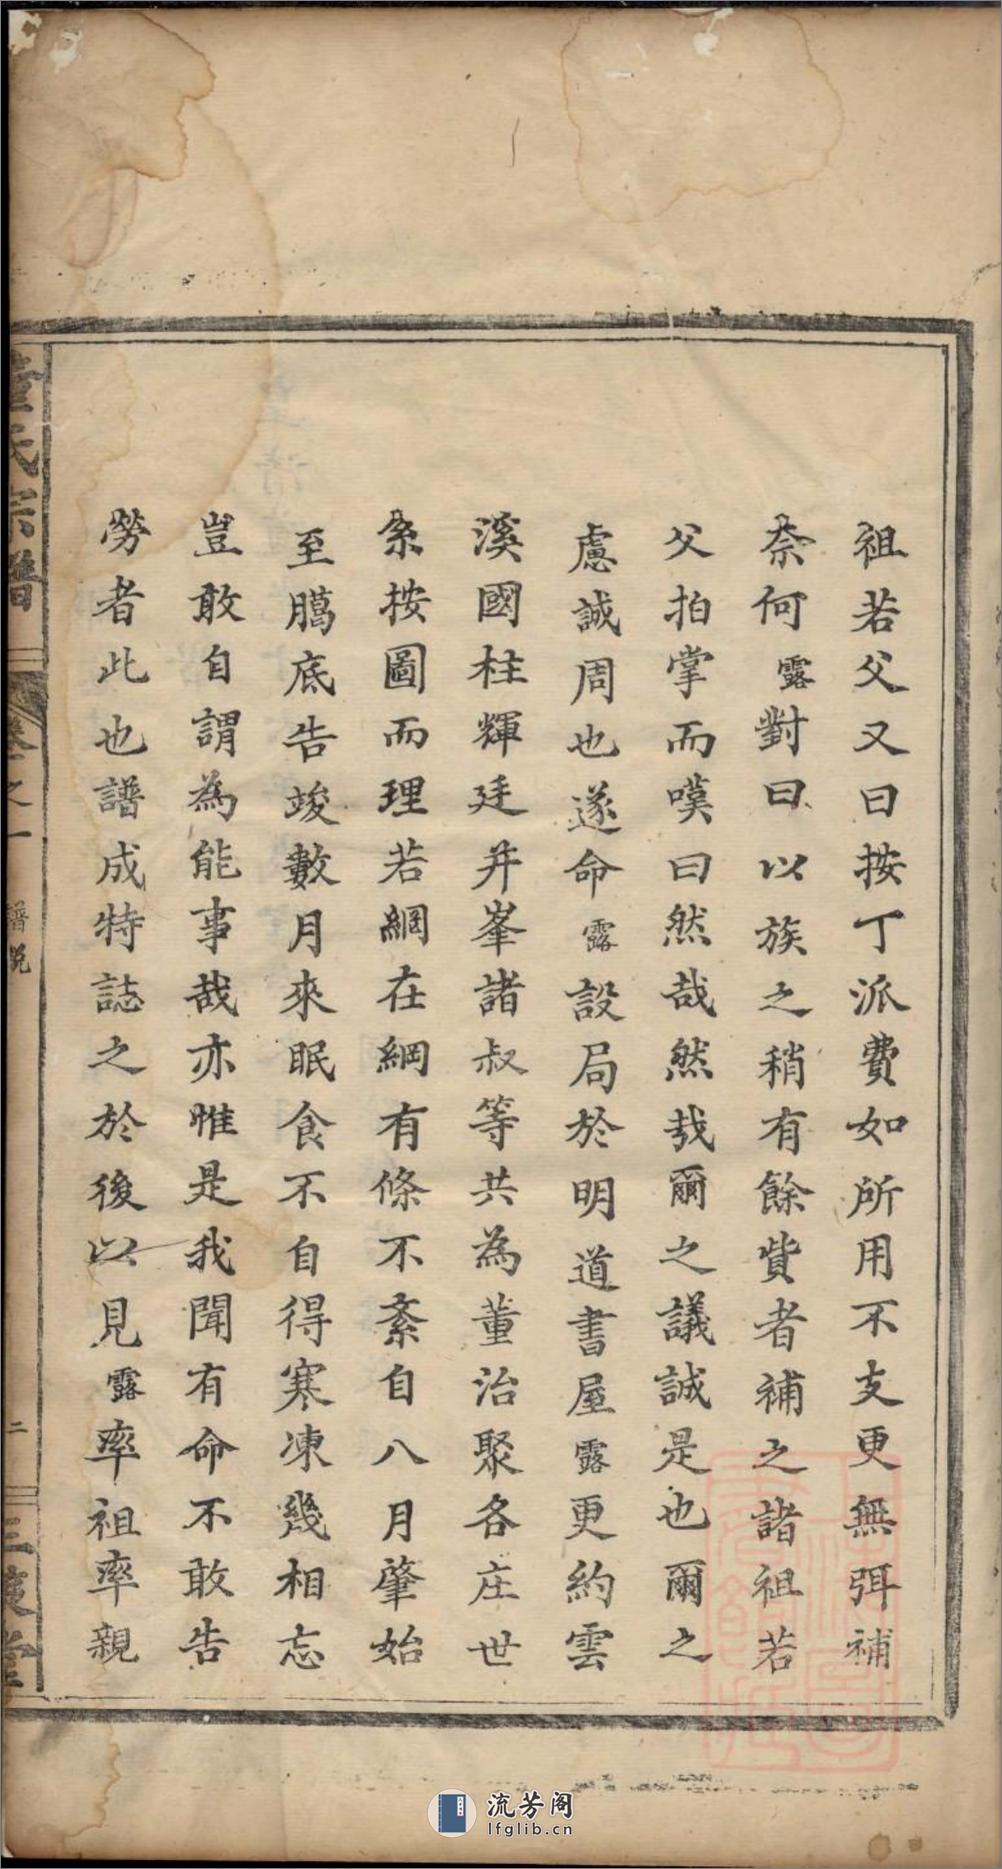 祖若父又曰按丁派費如所用不支更無弭補
奈何露對曰以族之稍有餘貲者補之諸祖若
父拍掌而嘆曰然哉然哉爾之議誠是也爾之
慮誠周也遂命露設局於明道書屋露更約雲
溪國柱輝廷并峯諸叔等共為董治聚各庄世
系按圖而理若網在綱有條不紊自八月肇始
至臈底告竣數月來眠食不自得寒凍幾相忘
豈敢自謂為能事哉亦惟是我聞有命不敢告
勞者此也譜成特誌之於後以見露率祖率親
董氏宗譜
卷之一
譜說
二
三策堂
流芳阁
lfglib.cn